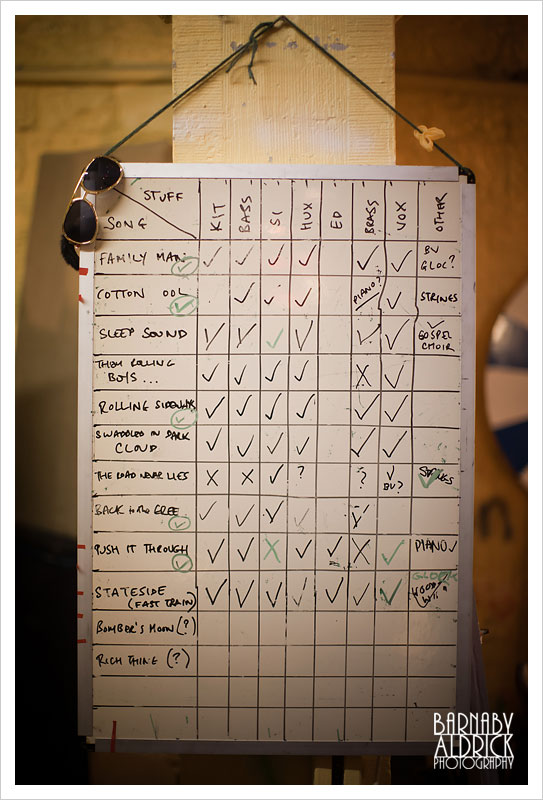 STUFF
SONG
KIT BASS SSI HUX ED BRASS VOX OTHER
FAMILY MAN ✓ ✓ ✓ ✓ ✓ ✓ ✓ BV
GLOC?
COTTON OOL ✓ ✓ ✓ ✓ PIANO? ✓ STRINGS
SLEEP SOUND ✓ ✓ ✓ ✓ ✓ ✓ ✓ GOSPEL
CHOIR
THEM ROLLING
BOYS... ✓ ✓ ✓ ✓ X ✓
ROLLING SIDEWALK ✓ ✓ ✓ ✓ ✓ ✓ ✓
SWADDLED IN DARK
CLOUD ✓ ✓ ✓ ✓ ✓ ✓
THE ROAD NEVER LIES X X ✓ ? ? ✓
BV?
BACK to the GREE ✓ ✓ ✓ ✓ ✓ ✓
PUSH IT THROUGH ✓ ✓ ✓ X ✓ ✓ X ✓ PIANO ✓
STATESIDE ✓ ✓ ✓ ✓ ✓ ✓ ✓ GLOCK
(FAST TRAIN)
BOMBER'S MOON (?)
RICH THINE (?)
BARNABY
ALDRICK
PHOTOGRAPHY